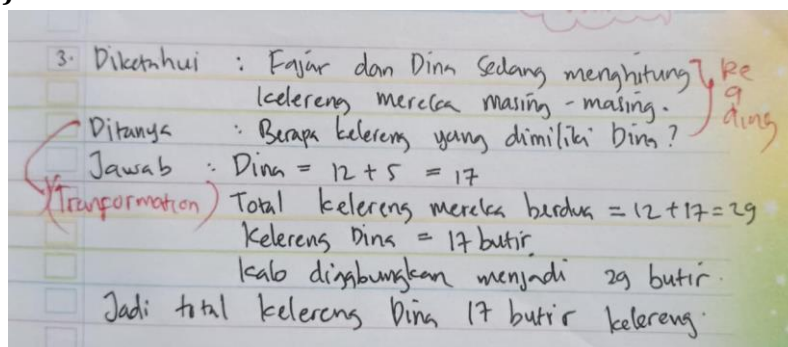 3. Diketahui : Fajar dan Dina sedang menghitung
kelereng mereka masing - masing.
Reading
Ditanya : Berapa kelereng yang dimiliki Dina?
Jawab : Dina = 12 + 5 = 17
(Tranformation) Total kelereng mereka berdua = 12 + 17 = 29
Kelereng Dina = 17 butir
kalo digabungkan menjadi 29 butir.
Jadi total kelereng Dina 17 butir kelereng.